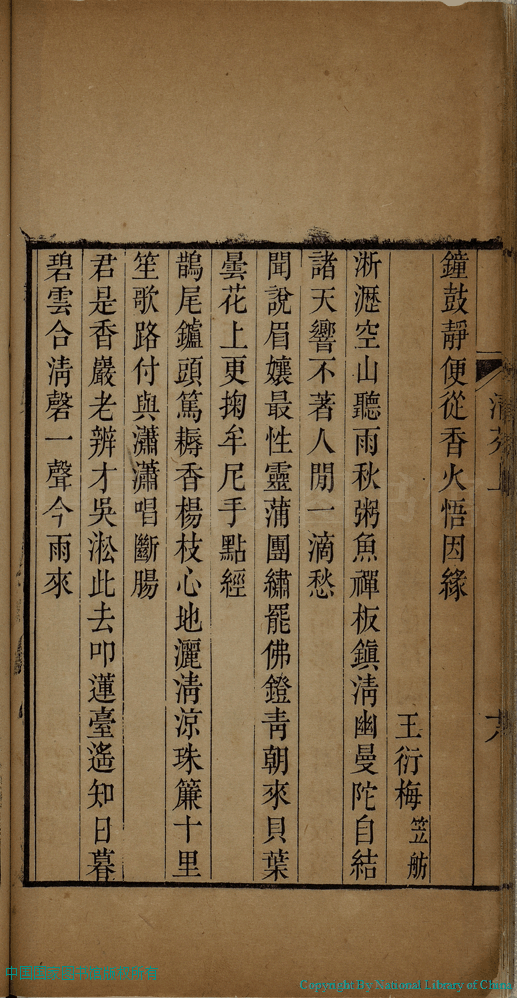 鐘鼓靜便從香火悟因緣
王衍梅 笠舫
淅瀝空山聽雨秋粥魚禪板鎮淸幽曼陀自結
諸天響不著人閒一滴愁
聞說眉孃最性靈蒲團繡罷佛鐙靑朝來貝葉
曇花上更掬牟尼手點經
鵲尾鑪頭篤耨香楊枝心地灑淸涼珠簾十里
笙歌路付與瀟瀟唱斷腸
君是香嚴老辨才吳淞此去叩蓮臺遙知日暮
碧雲合淸磬一聲今雨來
Copyright By National Library of China